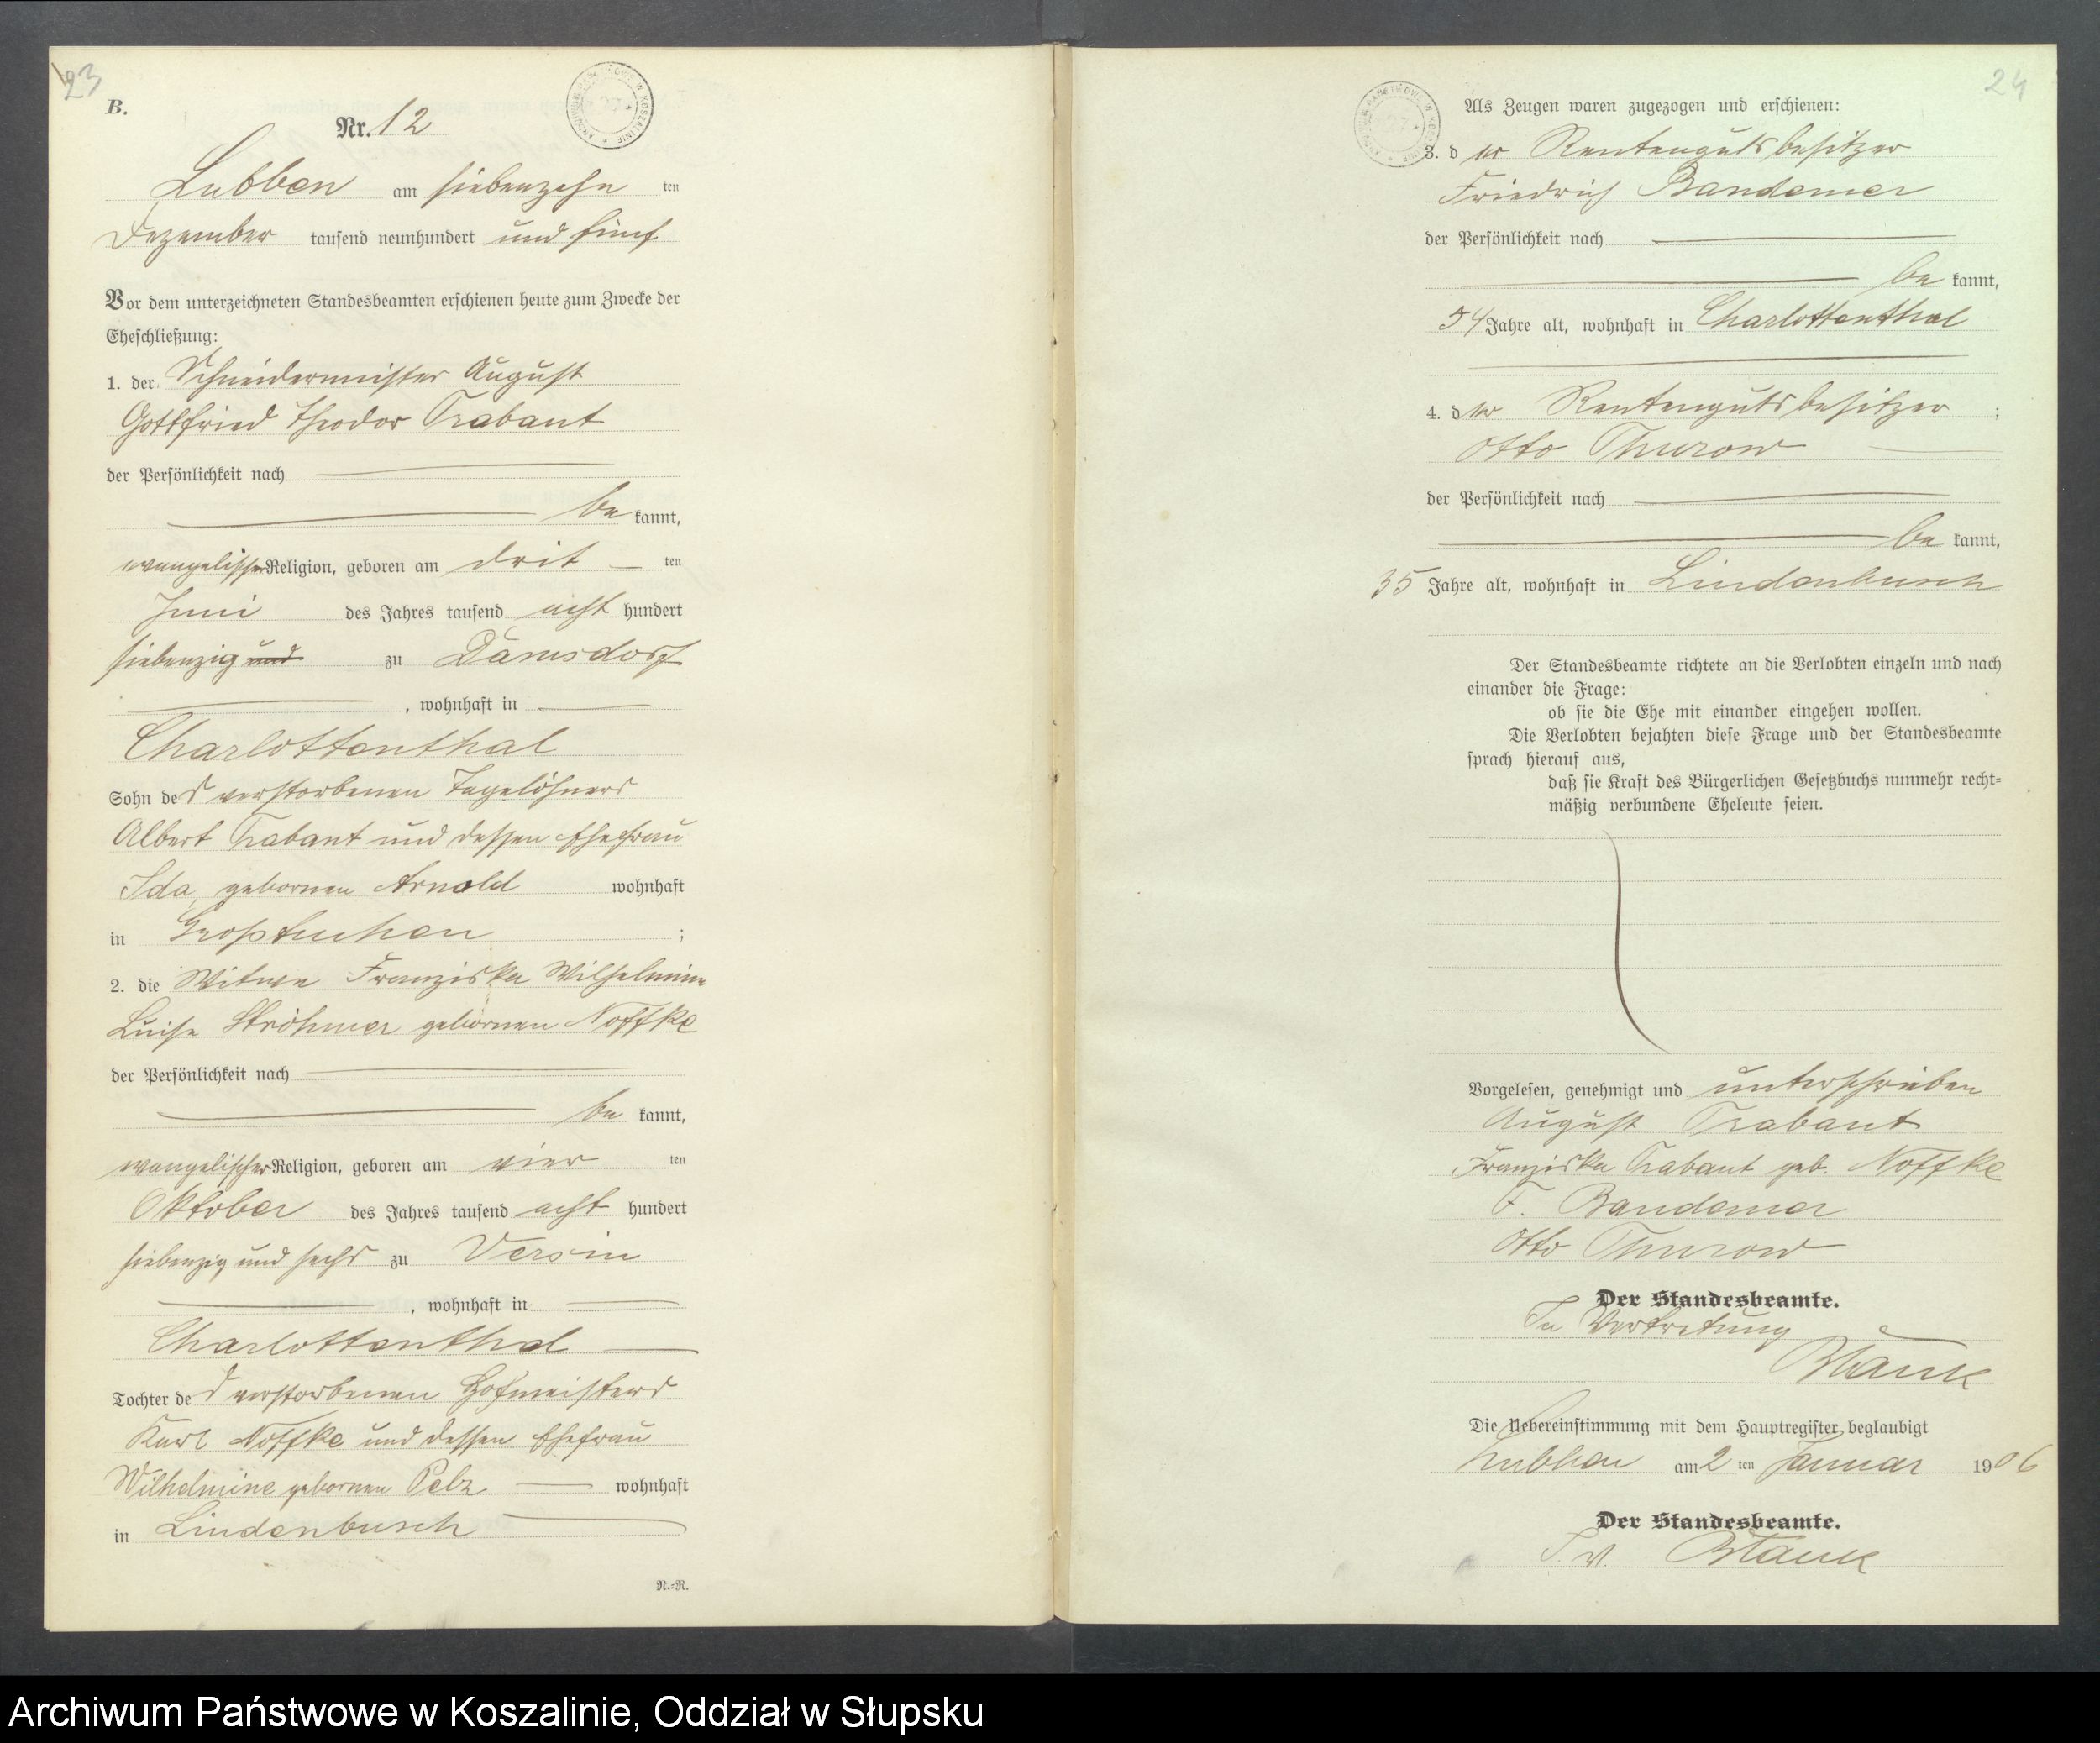 23
B.
Nr. 12
Lubben am siebenzehn ten
Dezember tausend neunhundert und fünf
Vor dem unterzeichneten Standesbeamten erschienen heute zum Zwecke der
Eheschließung:
1. der Schneidermeister August
Gottfried Theodor Trabant
der Persönlichkeit nach
be kannt,
evangelischer Religion, geboren am drit ten
Juni des Jahres tausend acht hundert
siebenzig und zu Damsdorf
, wohnhaft in
Charlottenthal
Sohn des verstorbenen Tagelöhners
Albert Trabant und dessen Ehefrau
Ida, gebornen Arnold wohnhaft
in Großtuchen ;
2. die Witwe Franziska Wilhelmine
Luise Ströhmer gebornen Noffke
der Persönlichkeit nach
be kannt,
evangelischer Religion, geboren am vier ten
Oktober des Jahres tausend acht hundert
siebenzig und sechs zu Versin
, wohnhaft in
Charlottenthal
Tochter des verstorbenen Hofmeisters
Karl Noffke und dessen Ehefrau
Wilhelmine gebornen Pelz wohnhaft
in Lindenbusch
N.-R.
24
Als Zeugen waren zugezogen und erschienen:
3. der Rentengutsbesitzer
Friedrich Bandemer
der Persönlichkeit nach
be kannt,
54 Jahre alt, wohnhaft in Charlottenthal
4. der Rentengutsbesitzer ;
Otto Thurow
der Persönlichkeit nach
be kannt,
35 Jahre alt, wohnhaft in Lindenbusch
Der Standesbeamte richtete an die Verlobten einzeln und nach
einander die Frage:
ob sie die Ehe mit einander eingehen wollen.
Die Verlobten bejahten diese Frage und der Standesbeamte
sprach hierauf aus,
daß sie Kraft des Bürgerlichen Gesetzbuchs nunmehr recht-
mäßig verbundene Eheleute seien.
Vorgelesen, genehmigt und unterschrieben
August Trabant
Franziska Trabant geb. Noffke
F. Bandemer
Otto Thurow
Der Standesbeamte.
In Vertretung
Die Uebereinstimmung mit dem Hauptregister beglaubigt
Lubben am 2 ten Januar 1906
Der Standesbeamte.
Archiwum Państwowe w Koszalinie, Oddział w Słupsku